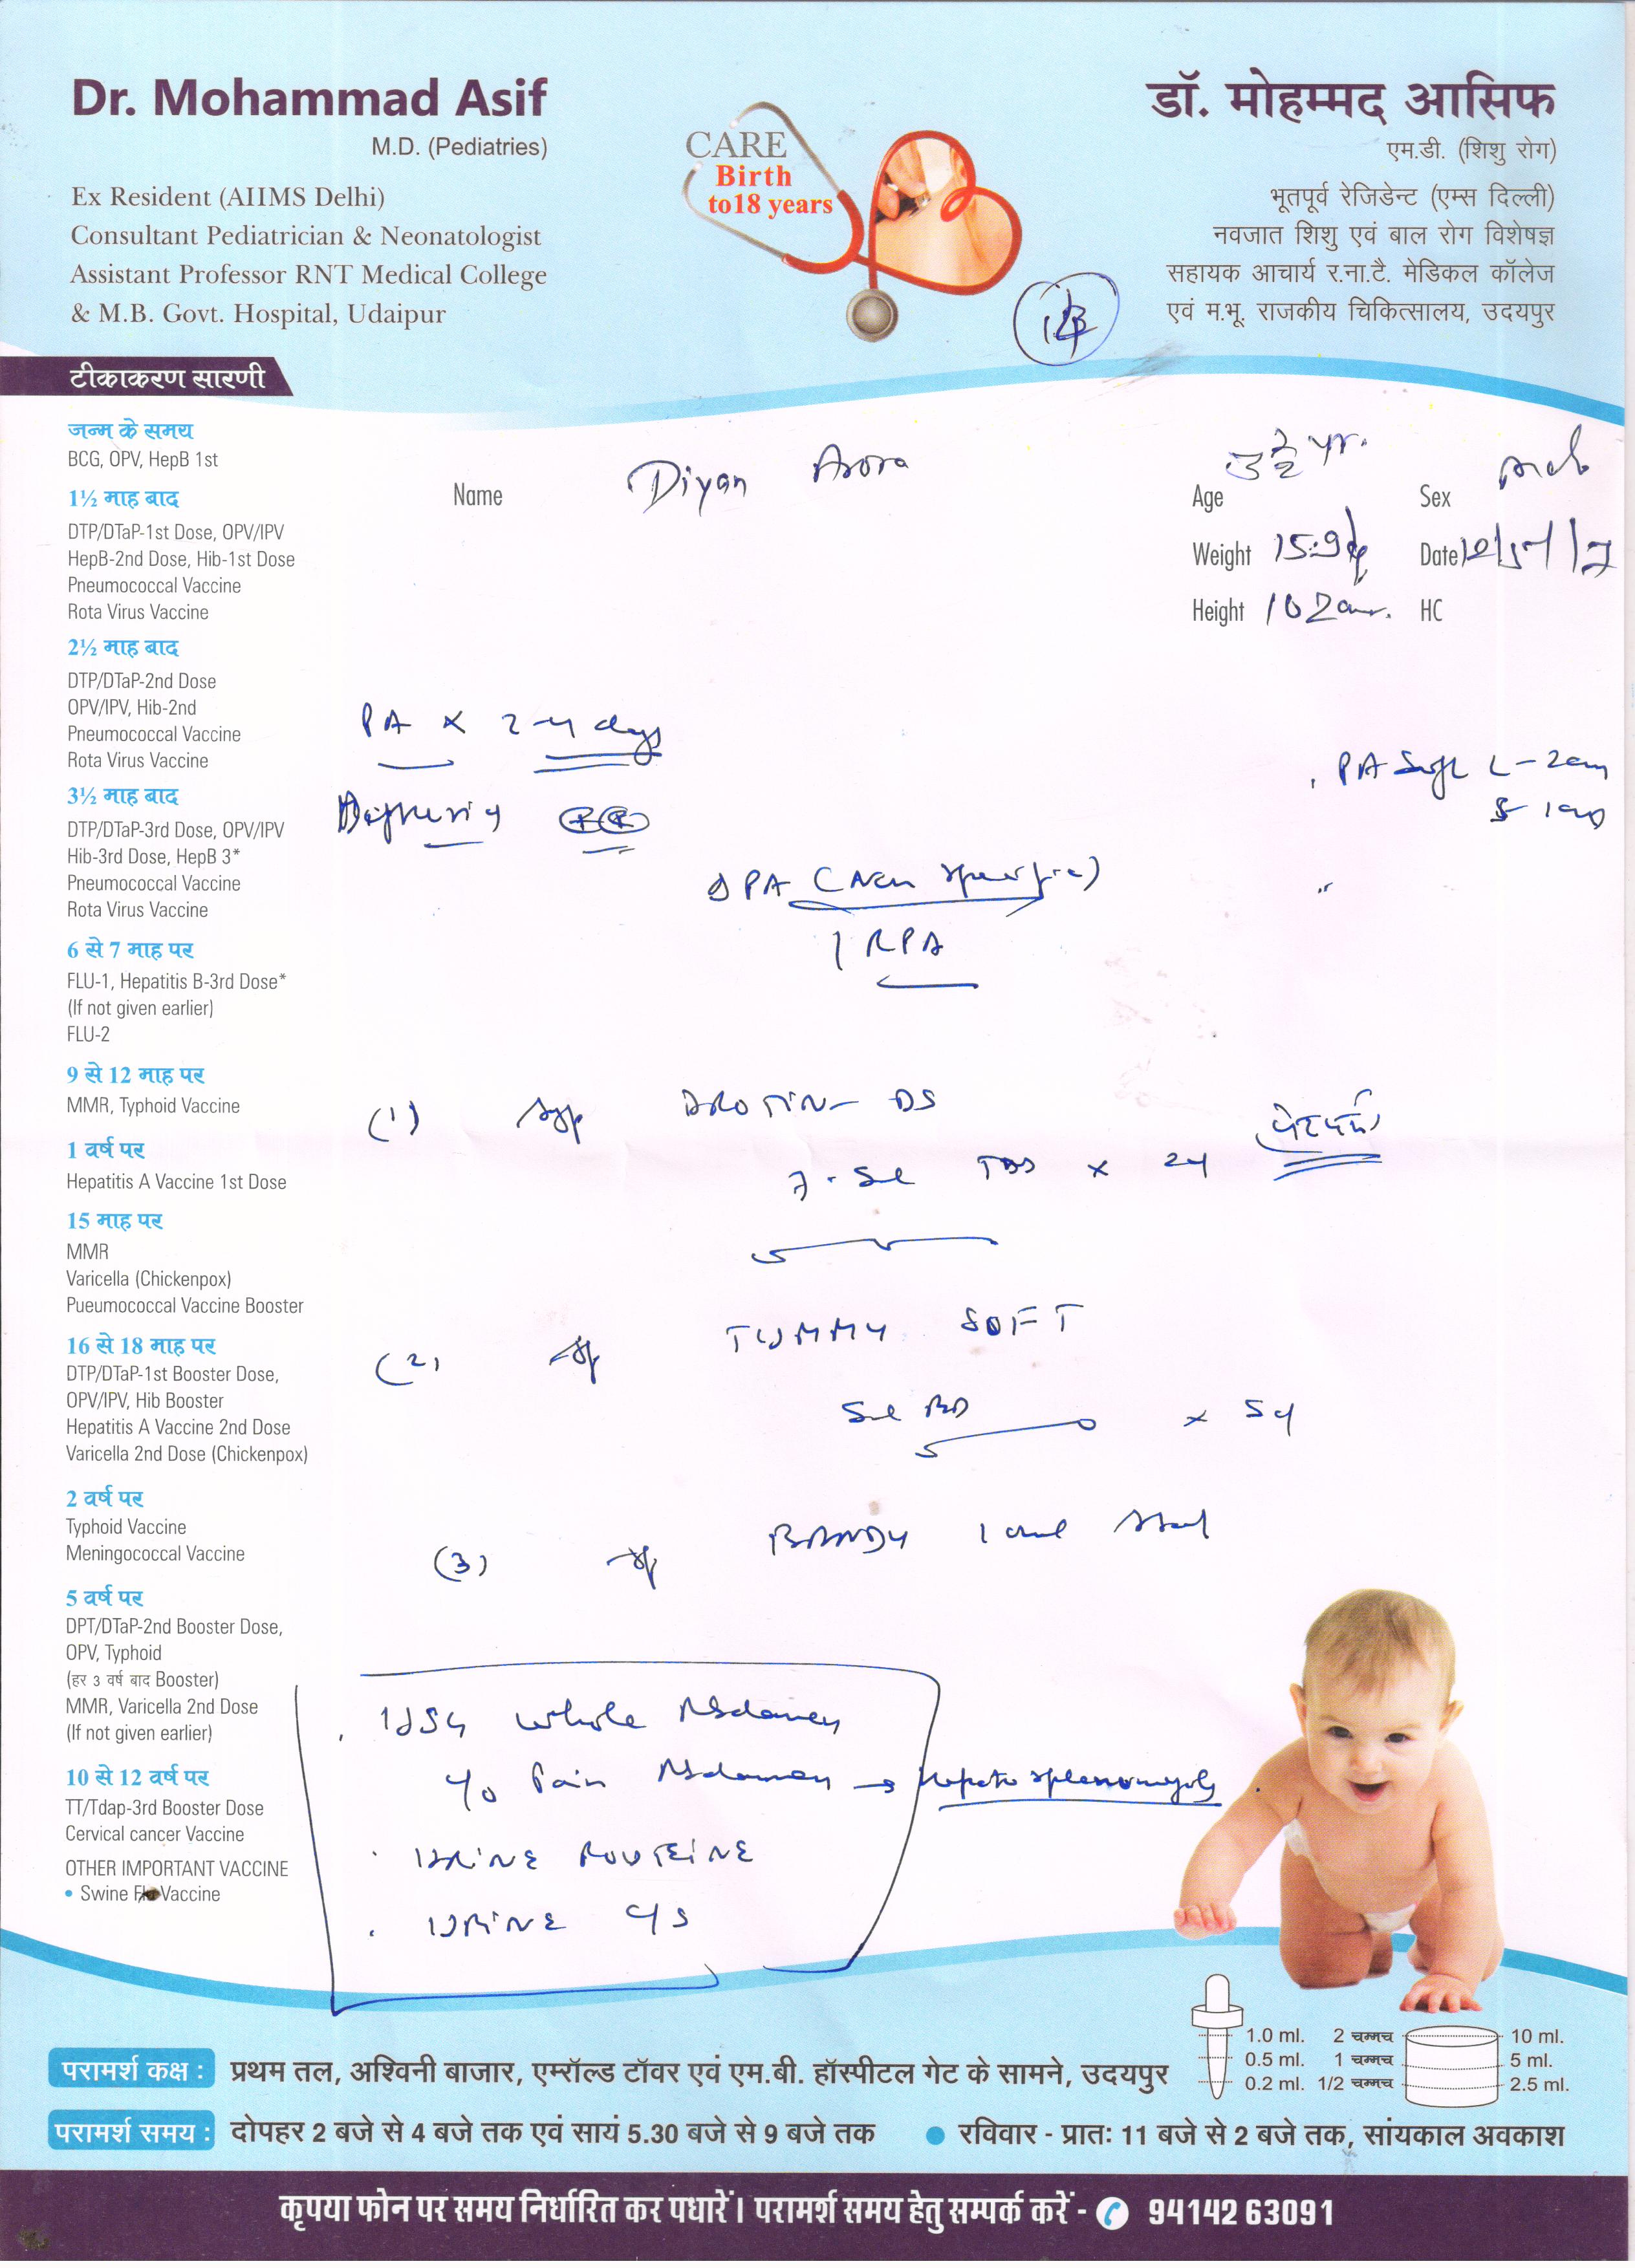 Dr. Mohammad Asif
M.D. (Pediatries)
Ex Resident (AIIMS Delhi)
Consultant Pediatrician & Neonatologist
Assistant Professor RNT Medical College
& M.B. Govt. Hospital, Udaipur
CARE
Birth
to18 years
डॉ. मोहम्मद आसिफ
एम.डी. (शिशु रोग)
भूतपूर्व रेजिडेन्ट (एम्स दिल्ली)
नवजात शिशु एवं बाल रोग विशेषज्ञ
सहायक आचार्य र.ना.टै. मेडिकल कॉलेज
एवं म.भू. राजकीय चिकित्सालय, उदयपुर
टीकाकरण सारणी
जन्म के समय
BCG, OPV, HepB 1st
1½ माह बाद
DTP/DTaP-1st Dose, OPV/IPV
HepB-2nd Dose, Hib-1st Dose
Pneumococcal Vaccine
Rota Virus Vaccine
2½ माह बाद
DTP/DTaP-2nd Dose
OPV/IPV, Hib-2nd
Pneumococcal Vaccine
Rota Virus Vaccine
3½ माह बाद
DTP/DTaP-3rd Dose, OPV/IPV
Hib-3rd Dose, HepB 3*
Pneumococcal Vaccine
Rota Virus Vaccine
6 से 7 माह पर
FLU-1, Hepatitis B-3rd Dose*
(If not given earlier)
FLU-2
9 से 12 माह पर
MMR, Typhoid Vaccine
1 वर्ष पर
Hepatitis A Vaccine 1st Dose
15 माह पर
MMR
Varicella (Chickenpox)
Pueumococcal Vaccine Booster
16 से 18 माह पर
DTP/DTaP-1st Booster Dose,
OPV/IPV, Hib Booster
Hepatitis A Vaccine 2nd Dose
Varicella 2nd Dose (Chickenpox)
2 वर्ष पर
Typhoid Vaccine
Meningococcal Vaccine
5 वर्ष पर
DPT/DTaP-2nd Booster Dose,
OPV, Typhoid
(हर 3 वर्ष बाद Booster)
MMR, Varicella 2nd Dose
(If not given earlier)
10 से 12 वर्ष पर
TT/Tdap-3rd Booster Dose
Cervical cancer Vaccine
OTHER IMPORTANT VACCINE
• Swine Flu Vaccine
Name Diyan Arora
Age 3½ yr. Sex male
Weight 15.9kg Date
Height 102cm. HC
PA x 2-4 days
PA Soft L-2cm
S-1cm
PA (Non specific)
RPA
(1) Syp DROTIN-DS
TDS x
पेट दर्द
(2) Syp TUMMY SOFT
5ml BD x 5d
(3) Syp BANDY
USG Whole Abdomen
Pain Abdomen → Hepatosplenomegaly
URINE ROUTEINE
URINE C/S
1.0 ml.
0.5 ml.
0.2 ml.
2 चम्मच 10 ml.
1 चम्मच 5 ml.
1/2 चम्मच 2.5 ml.
परामर्श कक्ष : प्रथम तल, अश्विनी बाजार, एमरॉल्ड टॉवर एवं एम.बी. हॉस्पीटल गेट के सामने, उदयपुर
परामर्श समय : दोपहर 2 बजे से 4 बजे तक एवं सायं 5.30 बजे से 9 बजे तक ● रविवार - प्रातः 11 बजे से 2 बजे तक, सांयकाल अवकाश
कृपया फोन पर समय निर्धारित कर पधारें। परामर्श समय हेतु सम्पर्क करें - 94142 63091